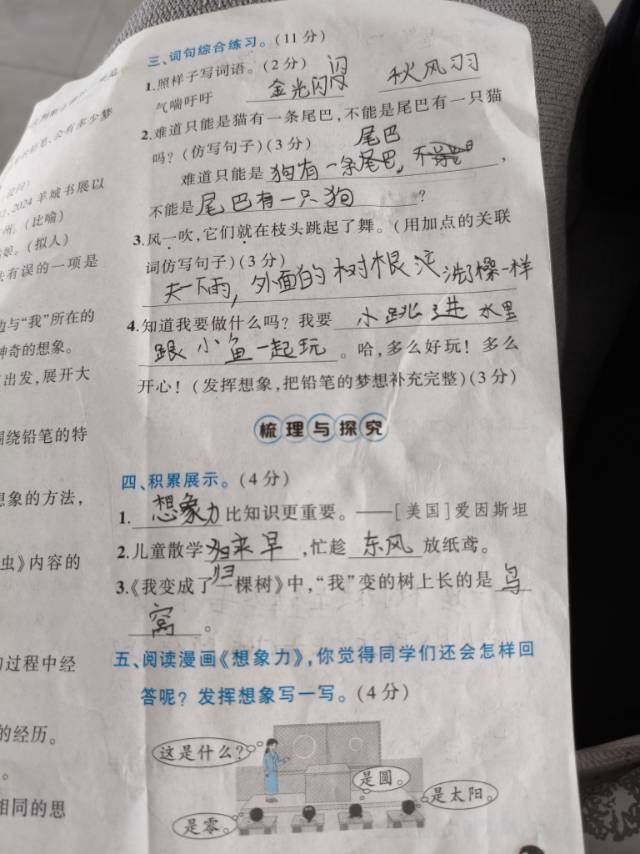 三、词句综合练习。(11分)
1.照样子写词语。(2分)
闪
气喘吁吁 金光闪闪 秋风习习
2.难道只能是猫有一条尾巴,不能是尾巴有一只猫
吗?(仿写句子)(3分) 尾巴
难道只能是狗有一条尾巴,
不能是尾巴有一只狗?
3.风一吹,它们就在枝头跳起了舞。(用加点的关联
词仿写句子)(3分)
天一下雨,外面的树根 洗澡一样
4.知道我要做什么吗?我要小跳进水里
跟小鱼一起玩。哈,多么好玩!多么
开心!(发挥想象,把铅笔的梦想补充完整)(3分)
梳理与探究
四、积累展示。(4分)
1.想象力比知识更重要。——[美国]爱因斯坦
2.儿童散学归来早,忙趁东风放纸鸢。
归
3.《我变成了一棵树》中,“我”变的树上长的是鸟
窝。
五、阅读漫画《想象力》,你觉得同学们还会怎样回
答呢?发挥想象写一写。(4分)
这是什么?
是圆。
是太阳。
是零。
2024羊城书展以
州。(比喻)
娘。(拟人)
有误的一项是
与“我”所在的
神奇的想象。
出发,展开大
绕铅笔的特
想象的方法,
虫》内容的
过程中经
的经历。
相同的思